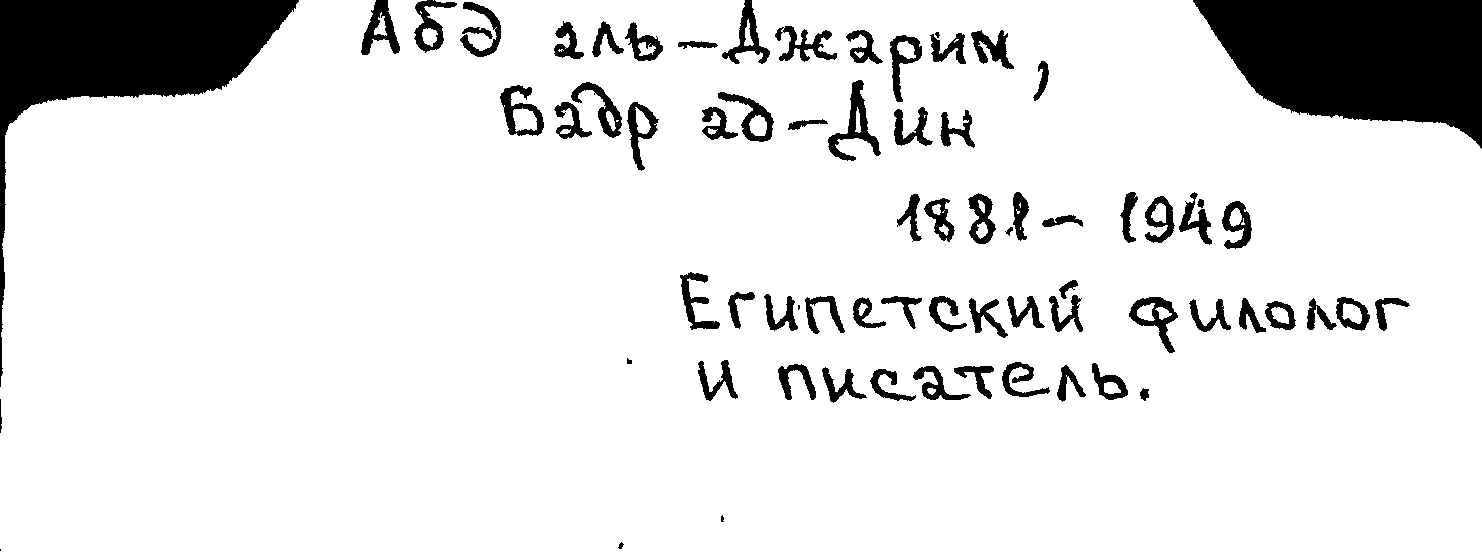 Абд аль-Джарим,
Бадр ад-Дин
1881- 1949
Египетский филолог
и писатель.